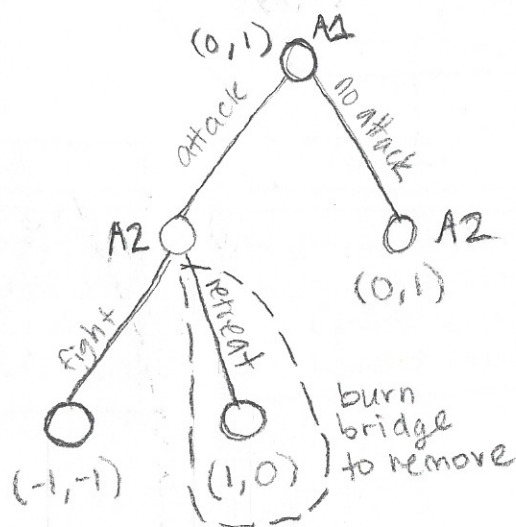 (0,1) A1
attack
no attack
A2
A2
(0,1)
fight
retreat
burn
bridge
to remove
(-1,-1)
(1,0)